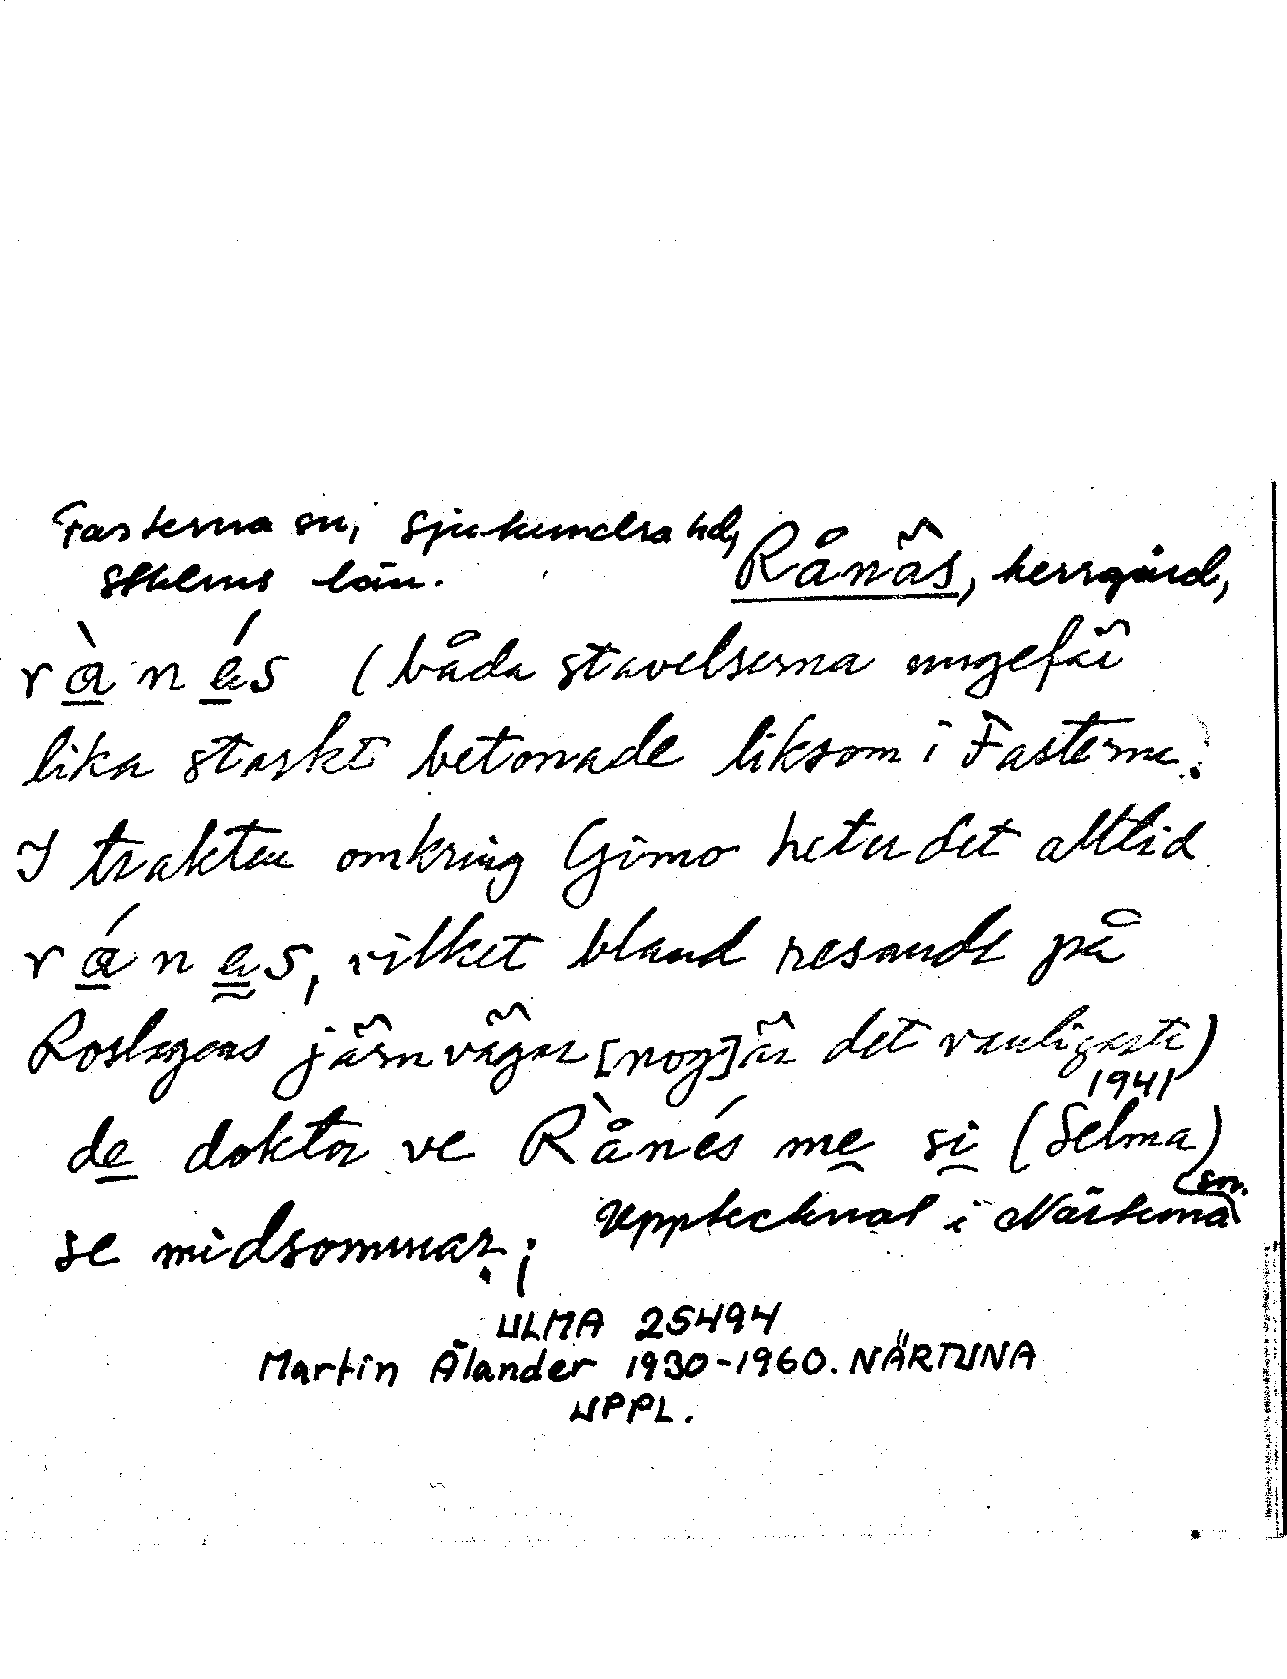 Fasterna sn, Sjuhundra hd,
Sthlms län.
Rånäs, herrgård,
rànés (båda stavelserna ungefär
lika starkt betonade liksom i Fasterna.
I trakten omkring Gimo heter det alltid
ránas, vilket bland resande på
Roslagens järnvägar [nog] är det vanligaste)
1941
de doktor ve Rånés me si (Selma)
se midsommar.; Upptecknat i Närtuna sn.
ULMA 25494
Martin Ålander 1930-1960. NÄRTUNA
UPPL.